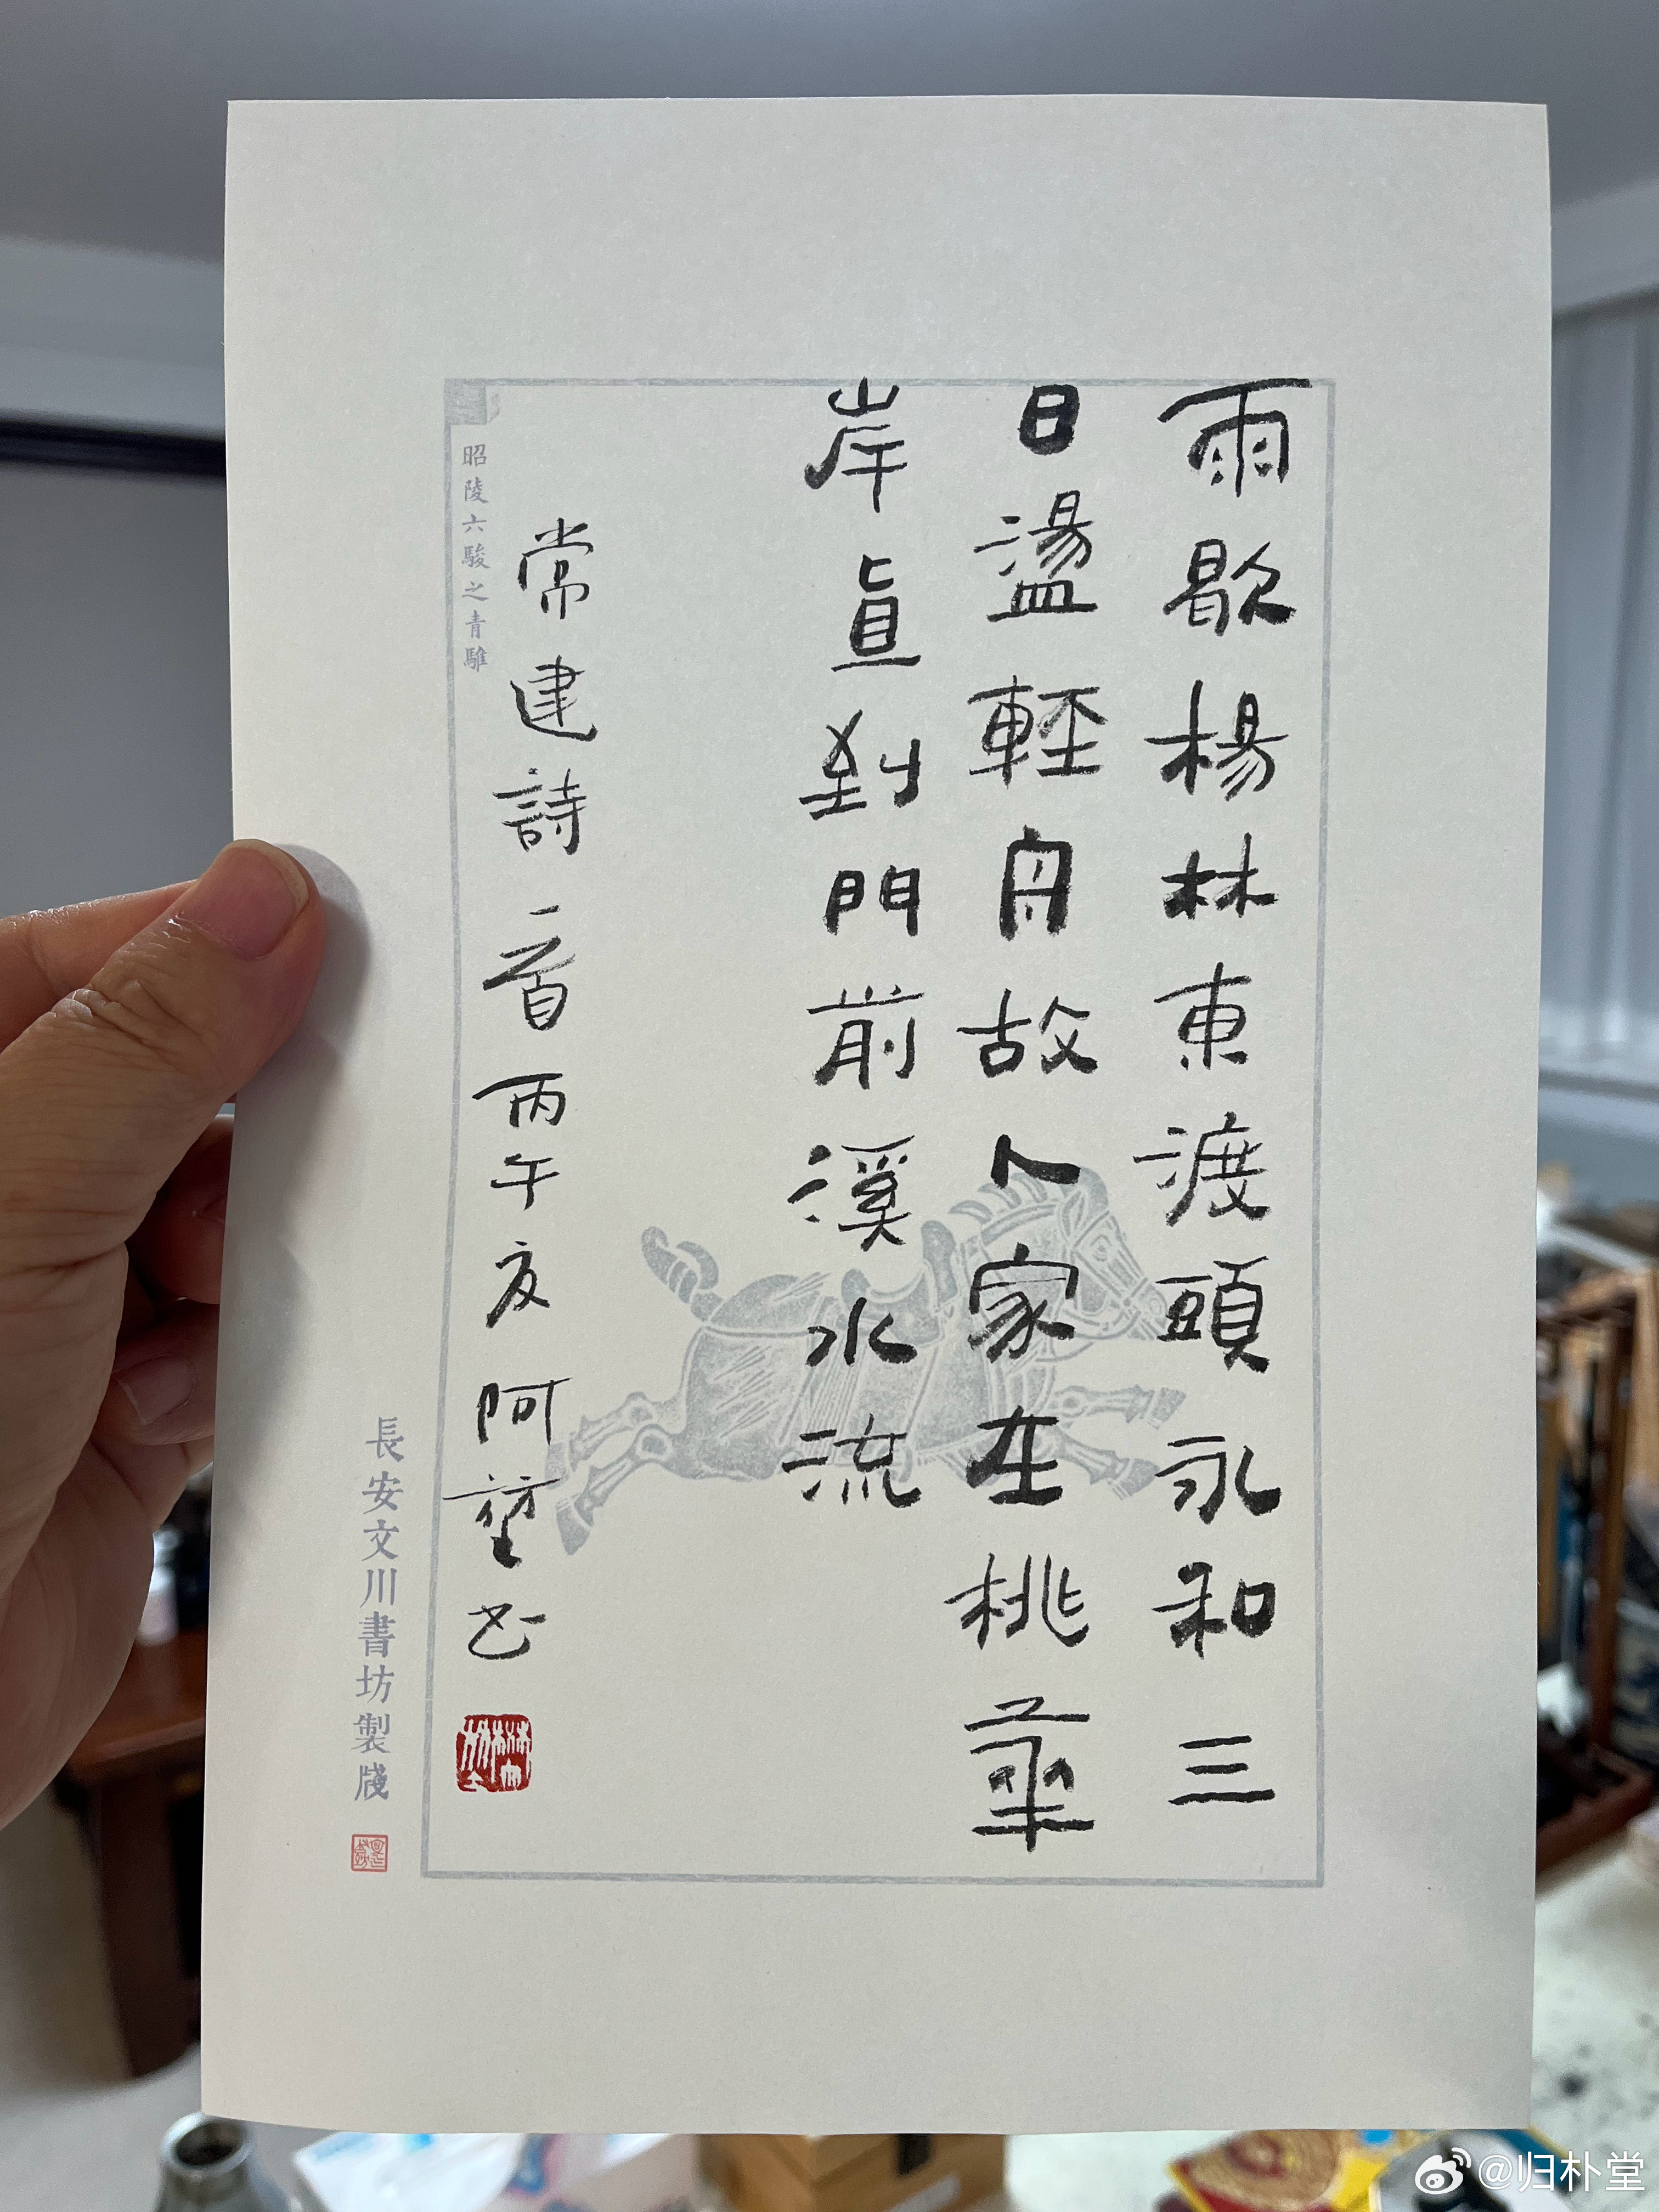 雨歇楊林東渡頭永和三
日盪輕舟故人家在桃華
岸直到門前溪水流
常建詩一首丙午夜阿堃书
昭陵六駿之青騅
長安文川書坊製牋
@归朴堂